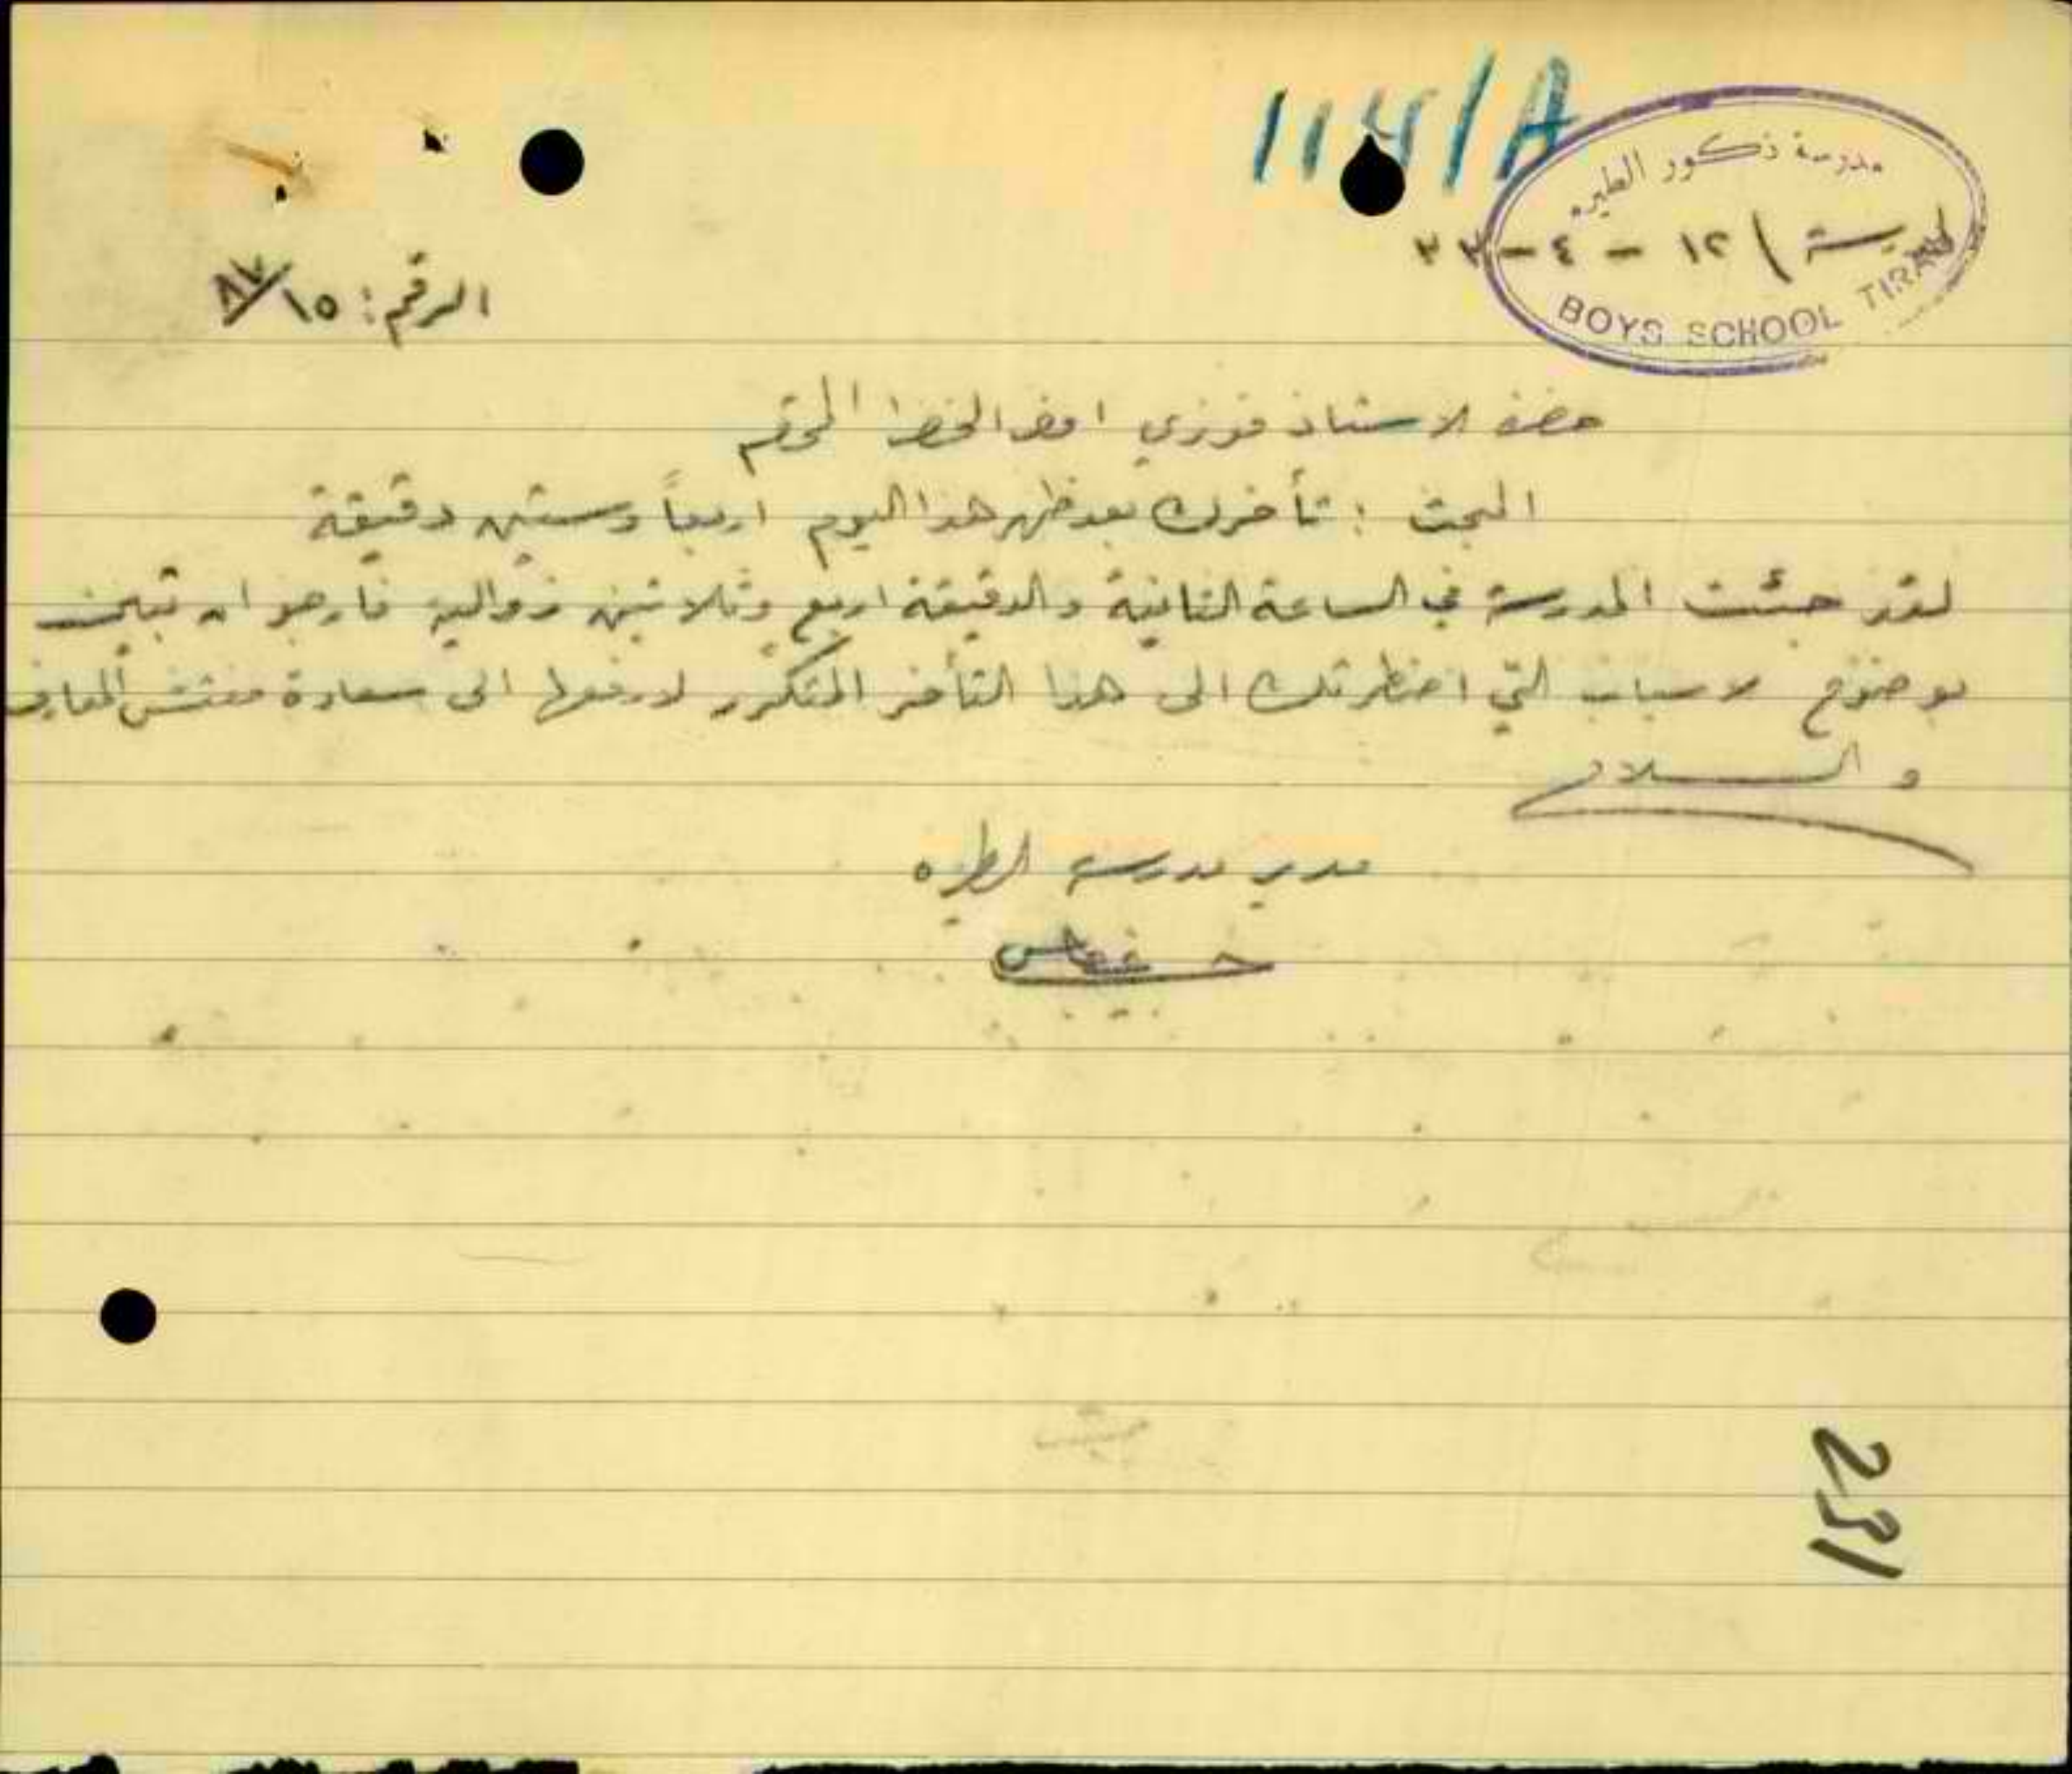 114/A
مدرسة ذكور الطيره
١٢ - ٤ - ٣٣
BOYS SCHOOL TIRAH
الرقم: ١٥/٨٧
حضرة الاستاذ فوزي افندي الخضرا المحترم
البحث : تأخرك بعد ظهر هذا اليوم اربعاً وستين دقيقة
لقد جئت المدرسة في الساعة الثانية والدقيقة اربع وثلاثين زواليه فارجو ان تبين
بوضوح الاسباب التي اضطرتك الى هذا التأخر المتكرر لارفعها الى سعادة مفتش المعارف
والسلام
مدير مدرسة الطيره
231